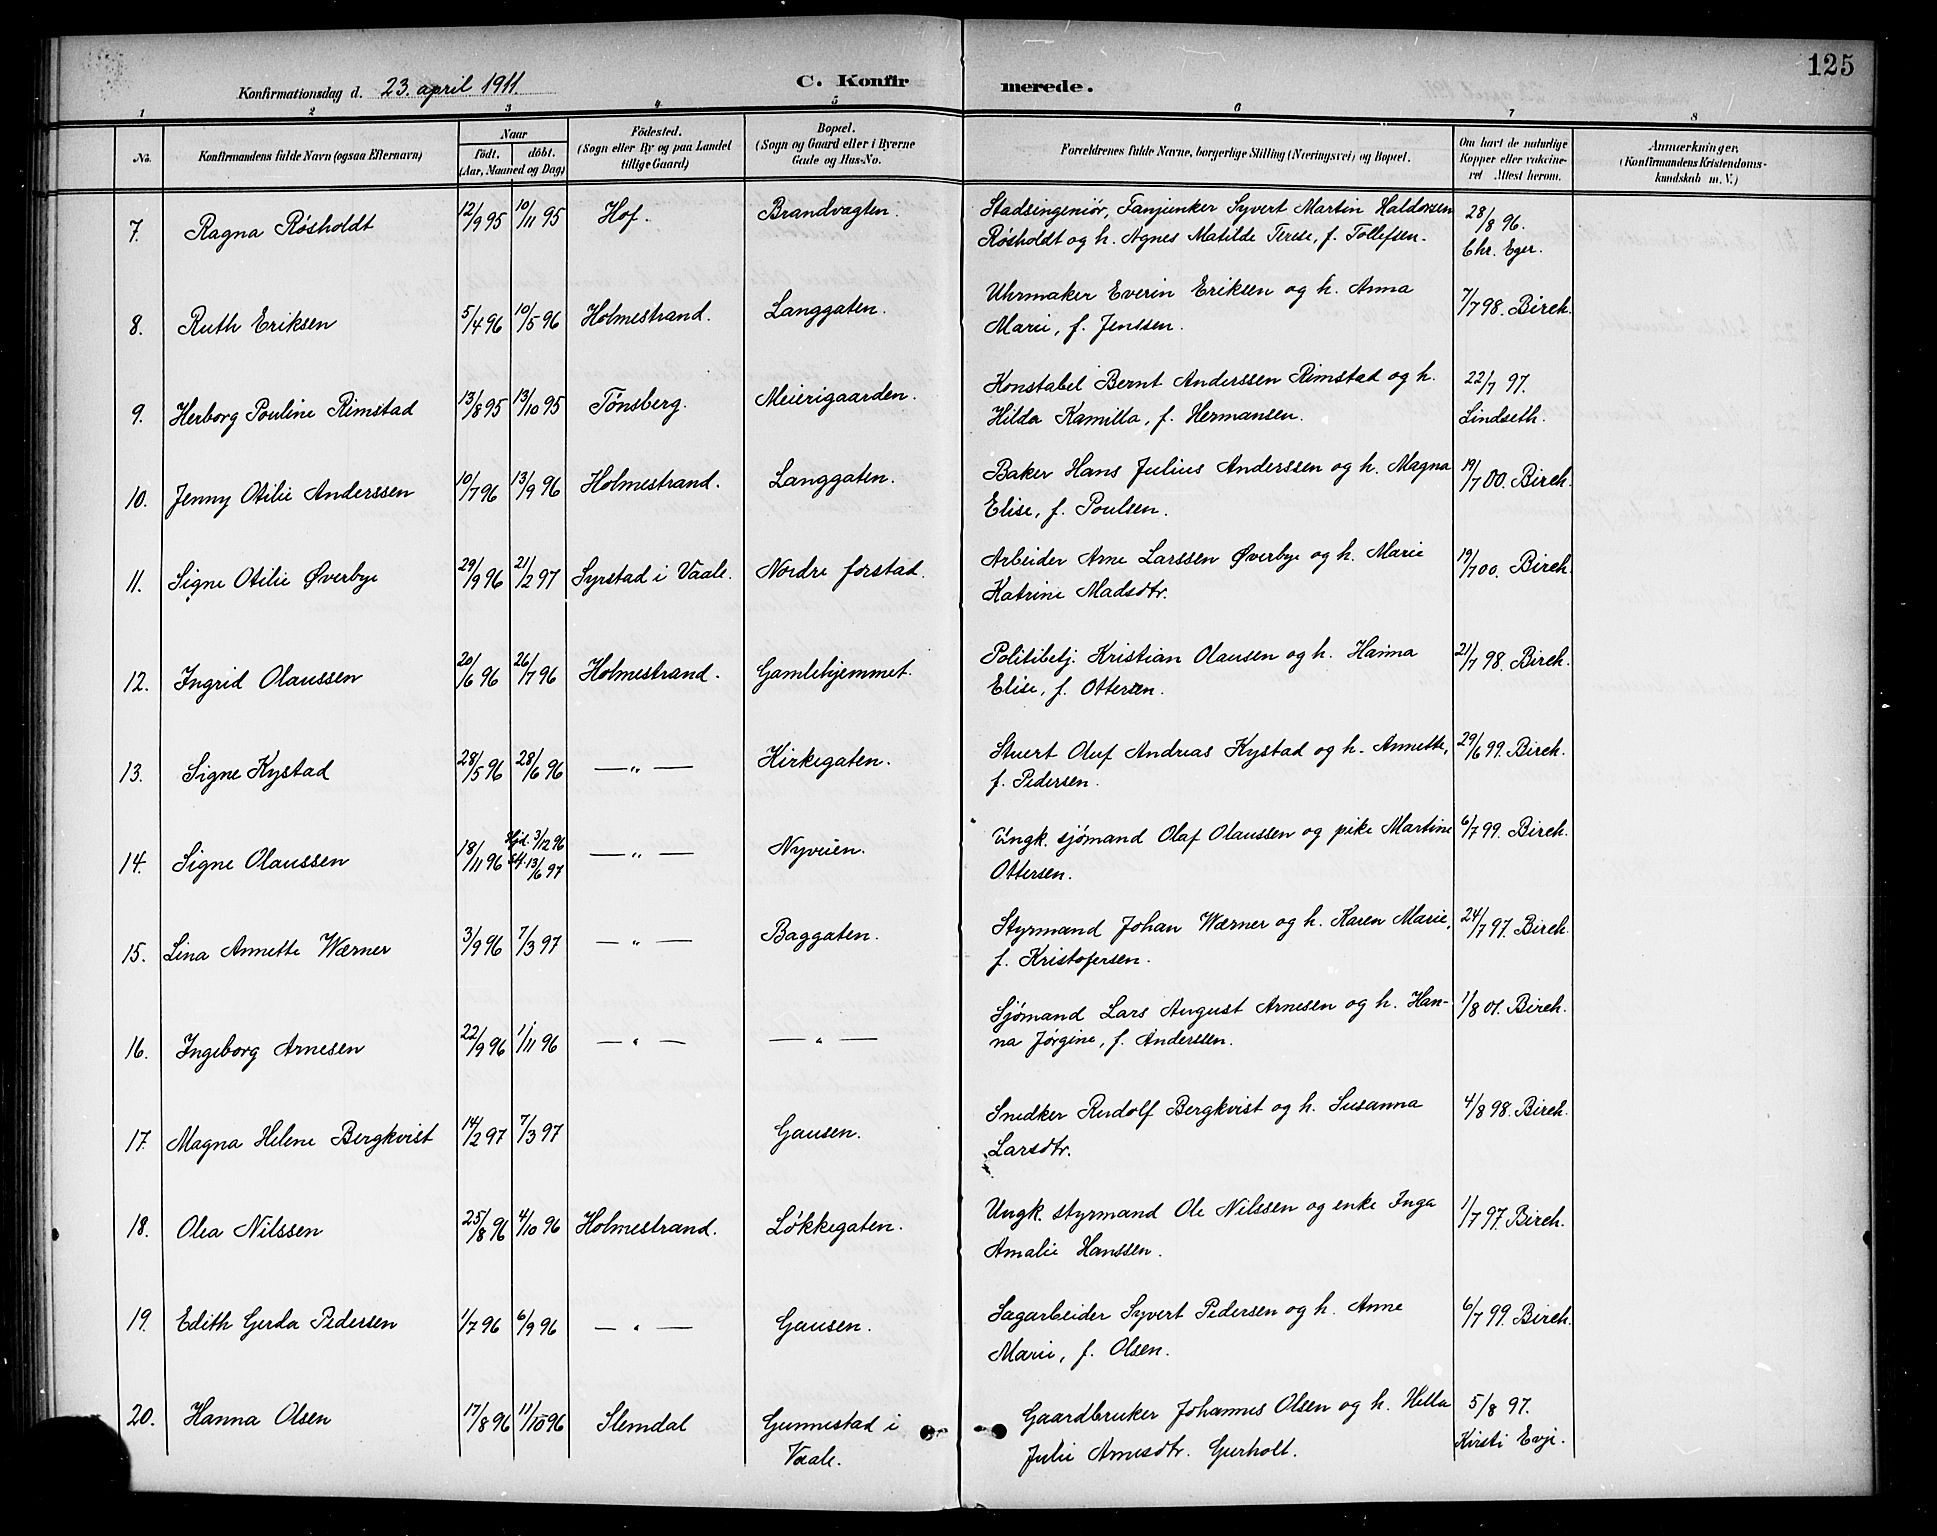 125
Konfirmationsdag d. 23. april 1911.
C. Konfir merede.
1 2 3 4 5 6 7 8
No.
Konfirmandens fulde Navn (ogsaa Efternavn)
Naar
födt. döbt.
(Aar, Maaned og Dag)
Födested.
(Sogn eller By og paa Landet
tillige Gaard)
Bopæl.
(Sogn og Gaard eller i Byerne
Gade og Hus-No.
Forældrenes fulde Navne, borgerlige Stilling (Næringsvei) og Bopæl.
Om havt de naturlige
Kopper eller vakcine-
ret Attest herom.
Anmærkninger.
(Konfirmandens Kristendoms-
kundskab m. V.)
7. Ragna Røsholdt 12/9 95 10/11 95 Hof. Brandvagten. Stadsingeniør, Fanjunker Syvert Martin Haldorsen 28/8 96.
Røsholdt og h. Agnes Matilde Terese, f. Tollefsen. Chr. Eger.
8. Ruth Eriksen 5/4 96 10/5 96 Holmestrand. Langgaten. Uhrmaker Everin Eriksen og h. Anna 7/7 98. Birch.
Marie, f. Jenssen.
9. Herborg Pouline Rimstad 13/8 95 13/10 95 Tønsberg. Meierigaarden. Konstabel Bernt Anderssen Rimstad og h. 22/7 97.
Hilda Kamilla, f. Hermansen. Lindseth.
10. Jenny Otilie Anderssen 10/7 96 13/9 96 Holmestrand. Langgaten. Baker Hans Julius Anderssen og h. Magna 19/7 00. Birch.
Elise, f. Poulsen.
11. Signe Otilie Øverbye 29/9 96 21/2 97 Syrstad i Vaale. Nordre forstad. Arbeider Arne Larssen Øverbye og h. Marie 19/7 00. Birch.
Katrine Madsdtr.
12. Ingrid Olaussen 20/6 96 26/7 96 Holmestrand. Gamlehjemmet. Politibetj. Kristian Olausen og h. Hanna 21/7 98. Birch.
Elise, f. Ottersen.
13. Signe Kystad 28/5 96 28/6 96 — „ — Kirkegaten. Stuert Oluf Andreas Kystad og h. Annette, 29/6 99. Birch.
f. Pedersen.
14. Signe Olaussen 18/11 96 Hjd. 3/12 96 — „ — Nyveien. Ungk. sjømand Olaf Olaussen og pike Martine 6/7 99. Birch.
Stf. 13/6 97 Ottersen.
15. Lina Annette Wærner 3/9 96 7/3 97 — „ — Baggaten. Styrmand Johan Wærner og h. Karen Marie, 24/7 97. Birch.
f. Kristofersen.
16. Ingeborg Arnesen 22/9 96 1/11 96 — „ — — „ — Sjømand Lars August Arnesen og h. Han- 1/8 01. Birch.
na Jørgine, f. Anderssen.
17. Magna Helene Bergkvist 14/2 97 7/3 97 Gausen. Snedker Rudolf Bergkvist og h. Susanna 4/8 98. Birch.
Larsdtr.
18. Olea Nilssen 25/8 96 4/10 96 Holmestrand. Løkkegaten. Ungk. styrmand Ole Nilssen og enke Inga 1/7 97. Birch.
Amalie Hanssen.
19. Edith Gerda Pedersen 1/7 96 6/9 96 — „ — Gausen. Sagarbeider Syvert Pedersen og h. Anne 6/7 99. Birch.
Marie, f. Olsen.
20. Hanna Olsen 17/8 96 11/10 96 Slemdal Gunnestad i Gaardbruker Johannes Olsen og h. Hella 5/8 97.
Vaale. Julie Arnesdtr. Gurholt. Kirsti Evje.